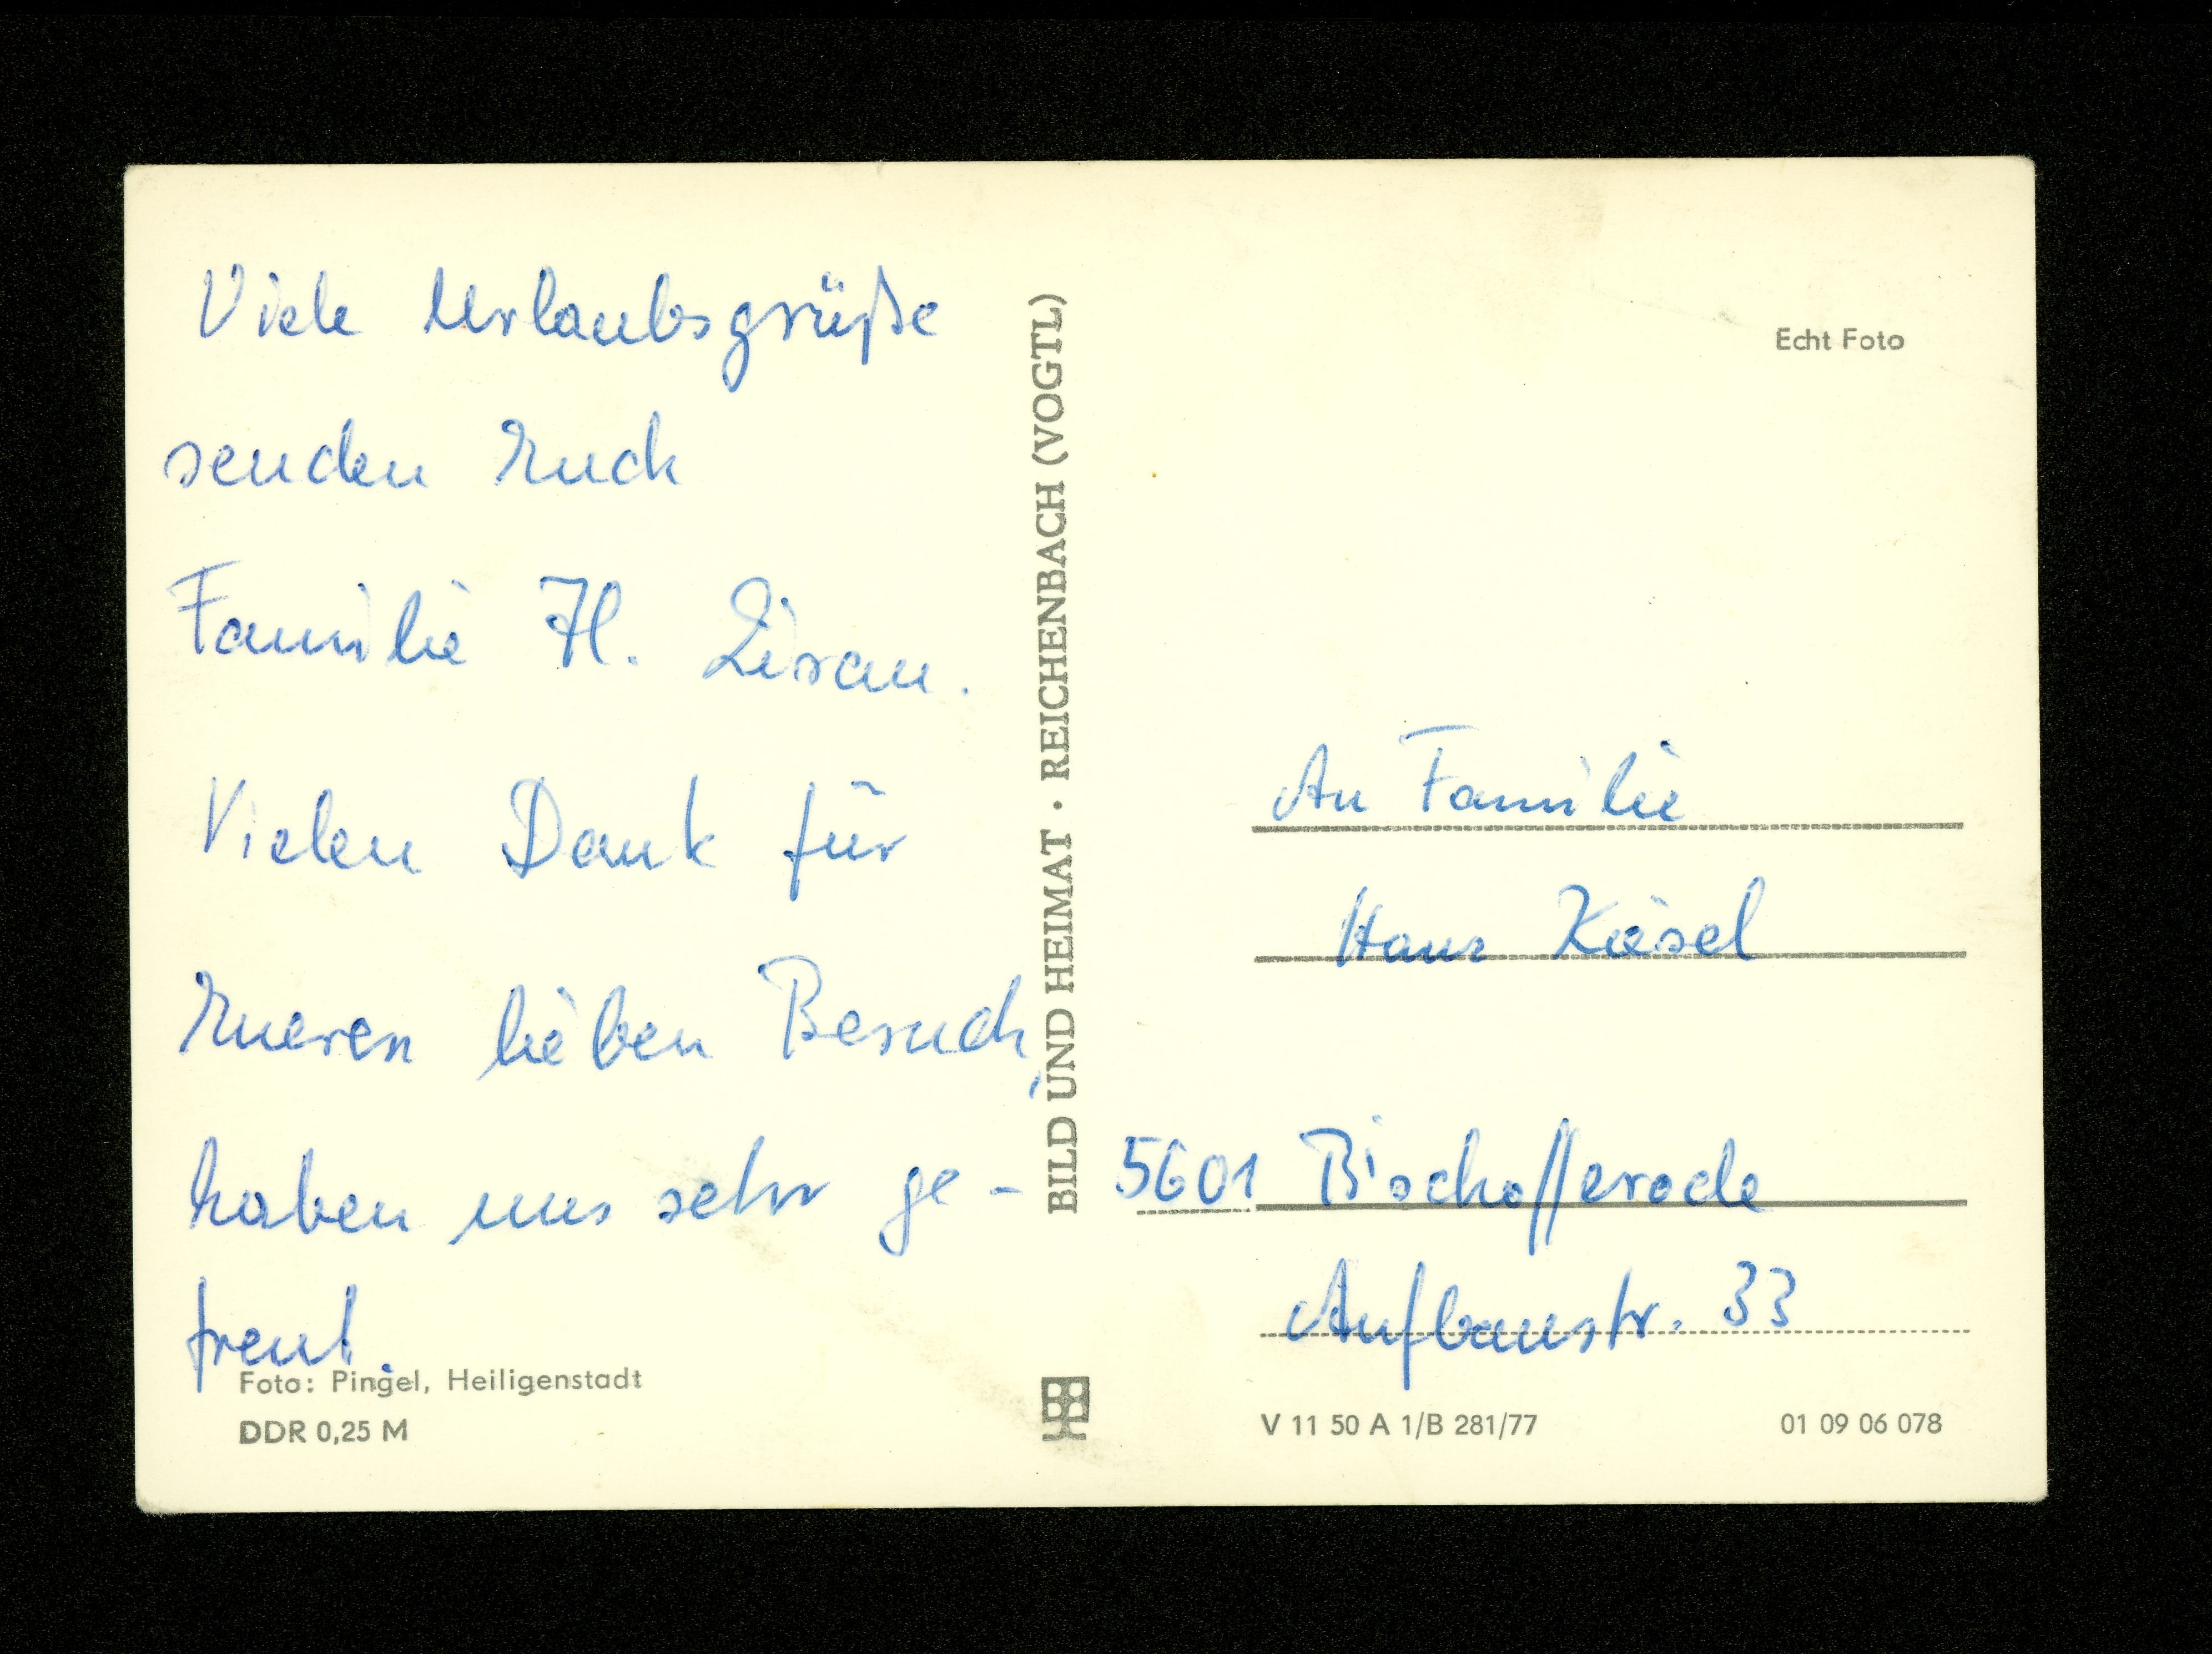 Viele Urlaubsgrüße
senden Euch
Familie H. Lirau.
Vielen Dank für
Eueren lieben Besuch,
haben uns sehr ge-
freut.
Foto: Pingel, Heiligenstadt
DDR 0,25 M
BILD UND HEIMAT · REICHENBACH (VOGTL)
Echt Foto
An Familie
Hans Käsel
5601 Bischofferode
Aufbaustr. 33
V 11 50 A 1/B 281/77
01 09 06 078